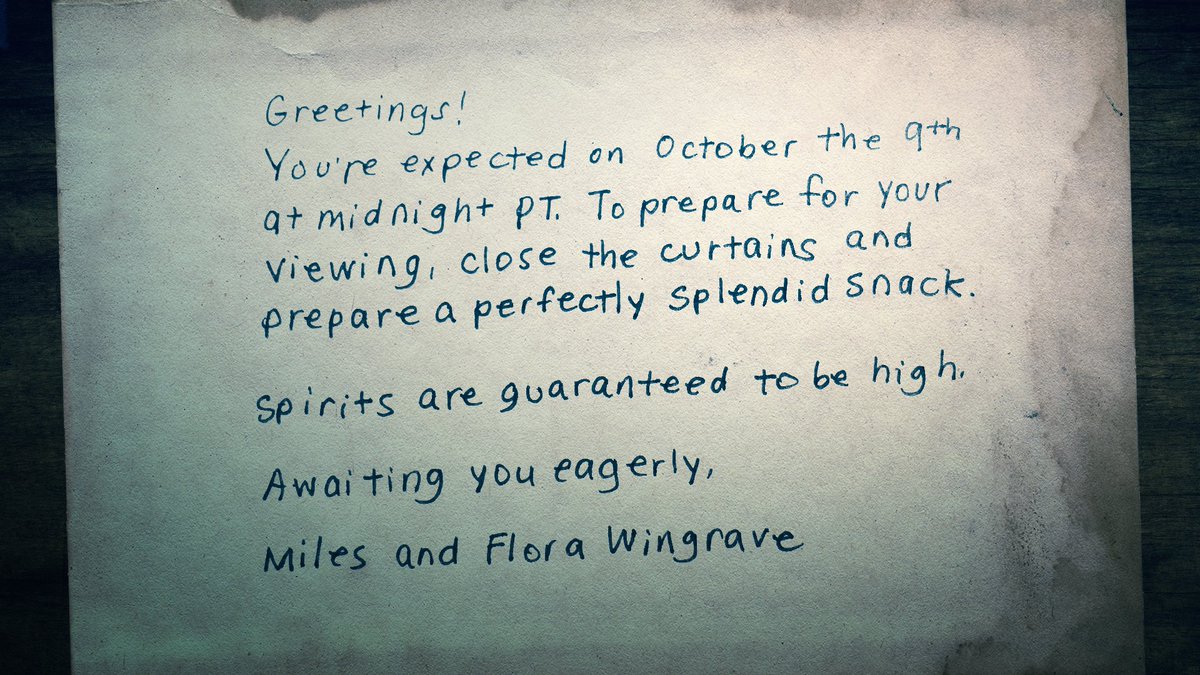 Greetings!
You're expected on October the 9th
at midnight PT. To prepare for your
viewing, close the curtains and
prepare a perfectly splendid snack.
Spirits are guaranteed to be high.
Awaiting you eagerly,
Miles and Flora Wingrave